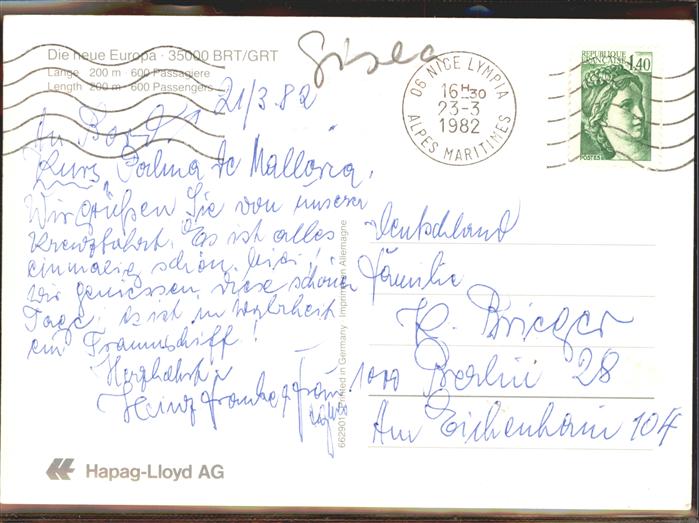 Die neue Europa · 35000 BRT/GRT
Länge 200 m · 600 Passagiere
Length 200 m · 600 Passengers
Gisela
06 NICE LYMPIA
16H30
23-3
1982
ALPES MARITIMES
REPUBLIQUE
FRANÇAISE
1,40
POSTES
21/3.82
An Bord
Kurs Palma de Mallorca.
Wir grüßen Sie von unserer
Kreuzfahrt. Es ist alles
einmalig schön hier!
Wir geniessen diese schönen
Tage. Es ist in Wahrheit
ein Traumschiff!
Herzlichst
Heinz Franke & Frau
Deutschland
Familie
H. Brieger
1000 Berlin 28
Am Eichenhain 104
Printed in Germany Imprimé en Allemagne
Hapag-Lloyd AG